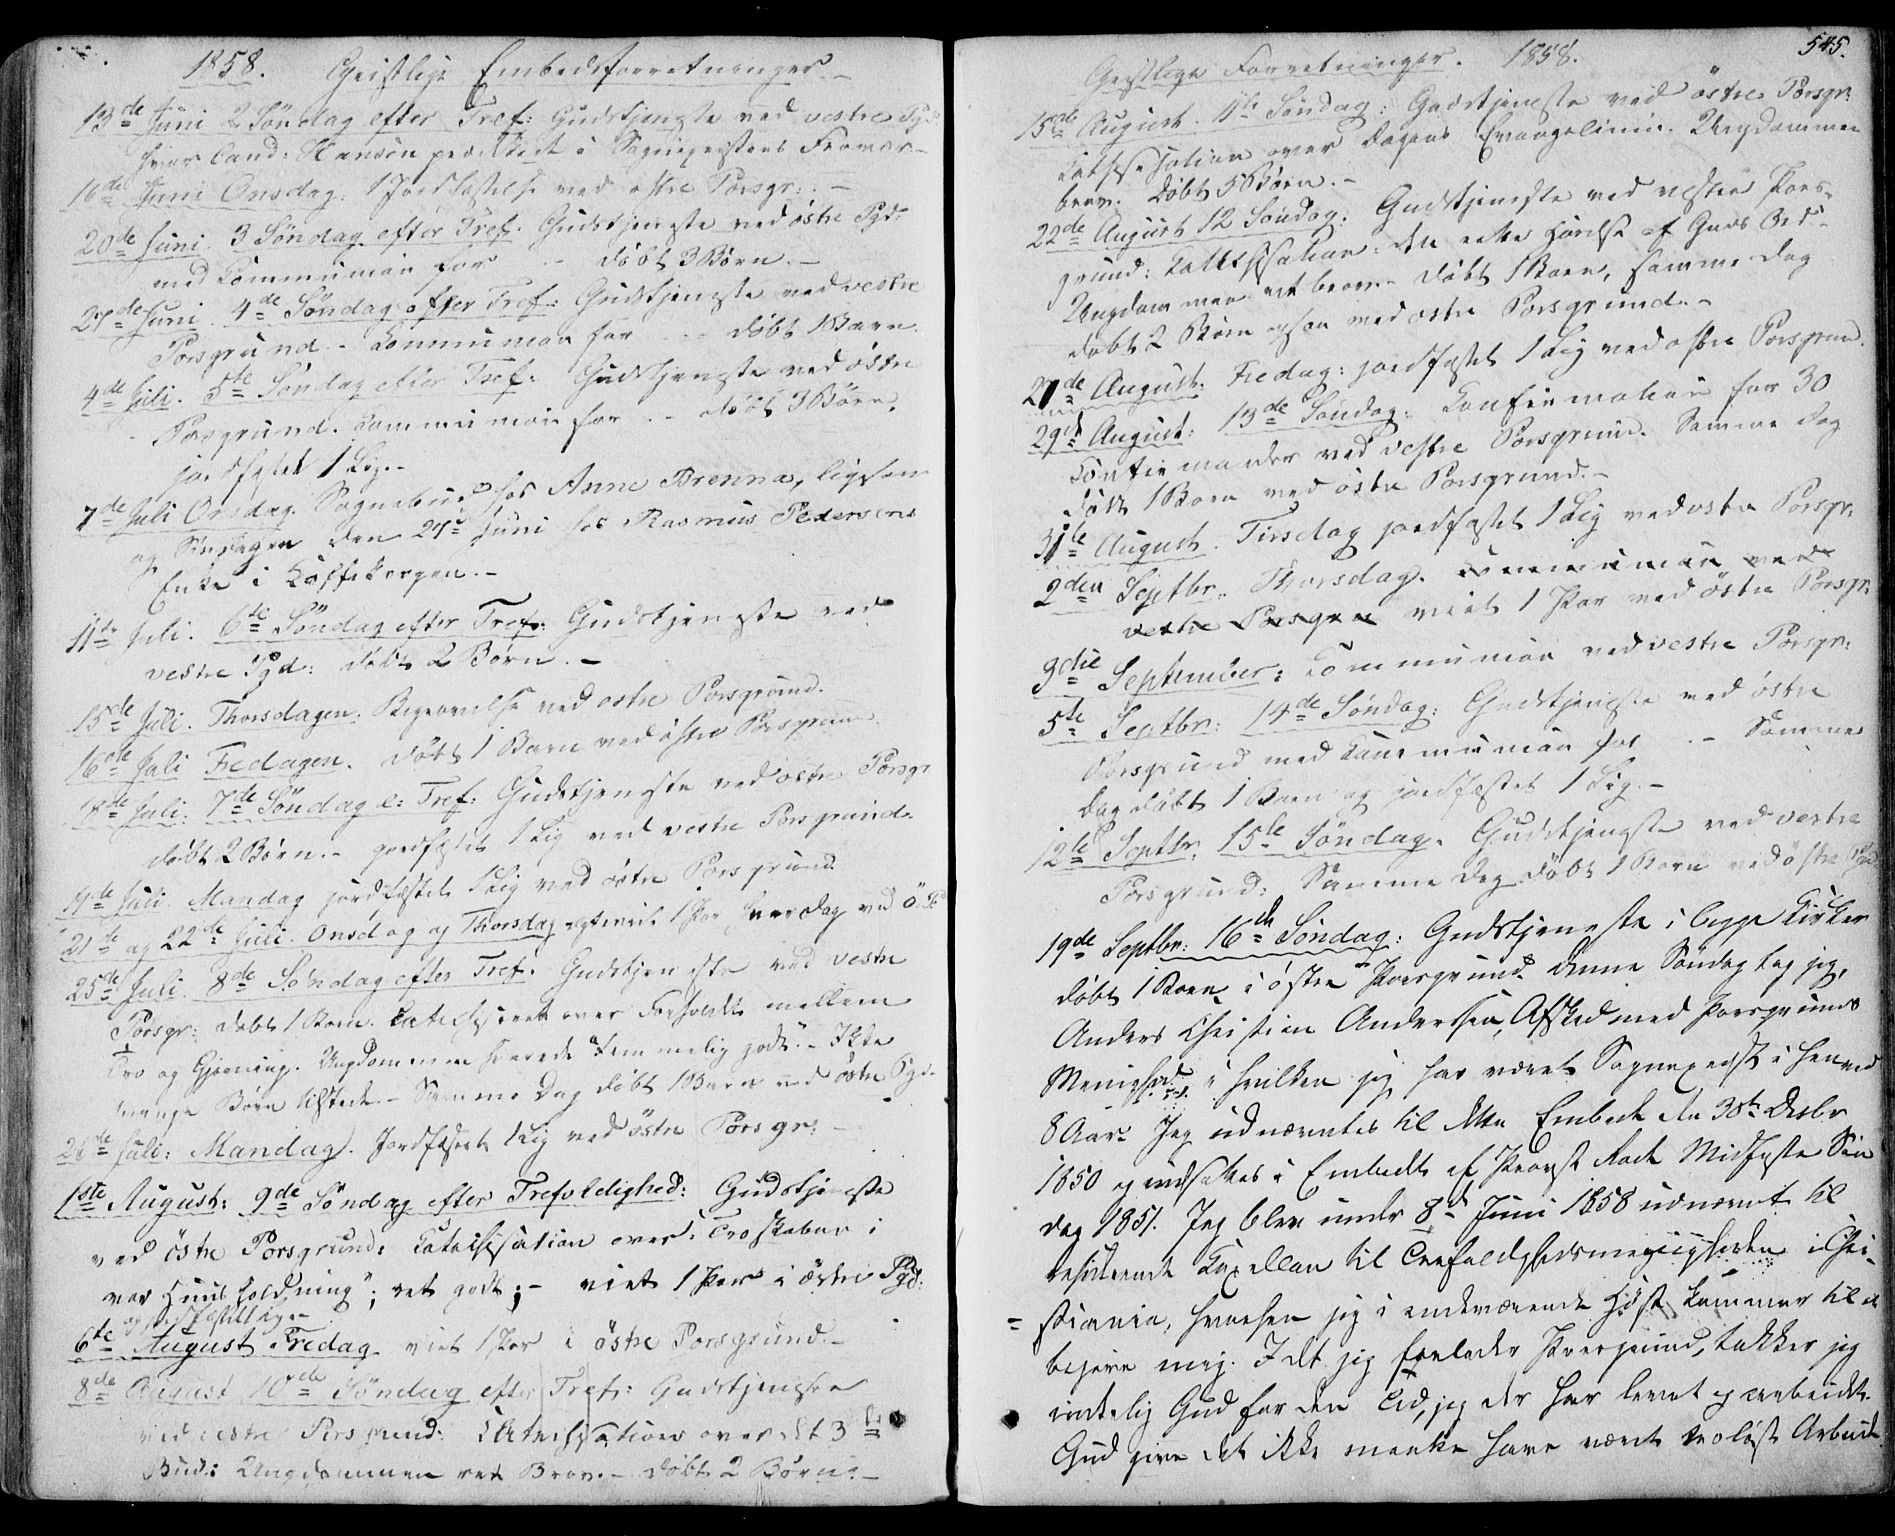 1858. Geistlige Embedsforretninger.
13de Juni 2 Søndag efter Tref: Gudstjeneste ved vestre Pgd:
hvor Cand: Hansen prædiket i Sognepræstens
16de Juni Onsdag. 1 Jordfæstelse ved østre Porsgr: -
20de Juni. 3 Søndag efter Tref. Gudstjeneste ved østre Pgd:
med Communion for - døbt 3 Børn. -
27de Juni. 4de Søndag efter Tref: Gudstjeneste ved vestre
Porsgrund. - Communion for - - døbt 1 Barn.
4de Juli. 5te Søndag efter Tref: Gudstjeneste ved østre
Porsgrund. Communion for - - døbt 3 Børn.
jordfæstet 1 Lig. -
7de Juli Onsdag. Sognebud hos Anne Brenna, ligesom
og Søndagen den 27de Juni hos Rasmus Pedersens
Enke i
11te Juli. 6te Søndag efter Tref: Gudstjeneste ved
vestre Pgd: døbt 2 Børn. -
15de Juli. Thorsdagen. Begravelse ved østre Porsgrund.
16de Juli Fredagen. døbt 1 Barn ved østre Porsgrund.
18de Juli. 7de Søndag e: Tref: Gudstjeneste ved østre Porsgr
døbt 2 Børn. - jordfæstet 1 Lig ved vestre Porsgrund.
19de Juli. Mandag jordfæstet 1 Lig ved østre Porsgrund.
21de og 22de Juli. Onsdag og Thorsdag egteviet 1 Par hver dag ved Ö. P
25de Juli. 8de Søndag efter Tref. Gudstjeneste ved vestre
Porsgr: døbt 1 Barn. Catechiseret over Forholdet mellem
Tro og Gjerning. Ungdommen svarede temmelig godt. - Ikke
mange Børn tilstede. - Samme Dag døbt 1 Barn ved østre Pgd.
26de Juli: Mandag. Jordfæstet 1 Lig ved østre Porsgr. -
1ste August: 9de Søndag efter Trefoldighed: Gudstjeneste
ved østre Porsgrund: Catechisation over: Troskaben i
vor Huusholdning"; ret godt; - viet 1 Par i østre Pgd:
og jordfæstet 1 Lig. -
6te August Fredag viet 1 Par i østre Porsgrund. -
8de August 10de Søndag efter Tref: Gudstjeneste
ved vestre Porsgrund: Catechisation over det 3de
Bud: Ungdommen ret Brav. - døbt 2 Børn. -
545.
Geistlige Forretninger. 1858.
15de August. 11te Søndag: Gudstjeneste ved østre Porsgr:
Catechisation over Dagens Evangelium. Ungdommen
brav. Døbt 5 Børn. -
22de August 12 Søndag: Gudstjeneste ved vestre Pors-
grund: Catechisation: den rette Hørelse af Guds Ord -
Ungdommen ret brav. Døbt 1 Barn, samme Dag
døbt 2 Børn ogsaa ved østre Porsgrund. -
27de August. Fredag: jordfæstet 1 Lig ved østre Porsgrund.
29de August: 13de Søndag. Confirmation for 30
Confirmander ved vestre Porsgrund. Samme Dag
døbt 1 Barn ved østre Porsgrund. -
31te August. Tirsdag jordfæstet 1 Lig ved østre Porsgr.
2den Septbr. Thorsdag. Communion ved
vestre Porsgru viet 1 Par ved østre Porsgr.
3die September: Communion ved vestre Porsgr:
5te Septbr: 14de Søndag: Gudstjeneste ved østre
Porsgrund med Communion for . - Samme
Dag døbt 1 Barn og jordfæstet 1 Lig. -
12te Septbr. 15te Søndag. Gudstjeneste ved vestre
Porsgrund: Samme Dag døbt 1 Barn ved østre Pgd
19de Septbr: 16de Søndag: Gudstjeneste i begge Kirker
døbt 1 Barn i østre Porsgrund. Denne Søndag tog jeg,
Anders Christian Anderssen, Afsked med Porsgrunds
Menighed, i hvilken jeg har været Sognepræst i henved
8 Aar. Jeg udnævntes til dette Embede den 30te Decbr
1850 og indsattes i Embedet af Provst Rode Midfaste Søn
dag 1851. Jeg blev under 8de Juni 1858 udnævnt til
residerende Capellan til Trefoldighedsmenigheden i Chri-
stiania, hvorhen jeg i indeværende Høst kommer til at
begive mig. Idet jeg forlader Porsgrund, takker jeg
inderlig Gud for den Tid, jeg der har levet og arbeidet.
Gud give det ikke maatte have været troløst Arbeide